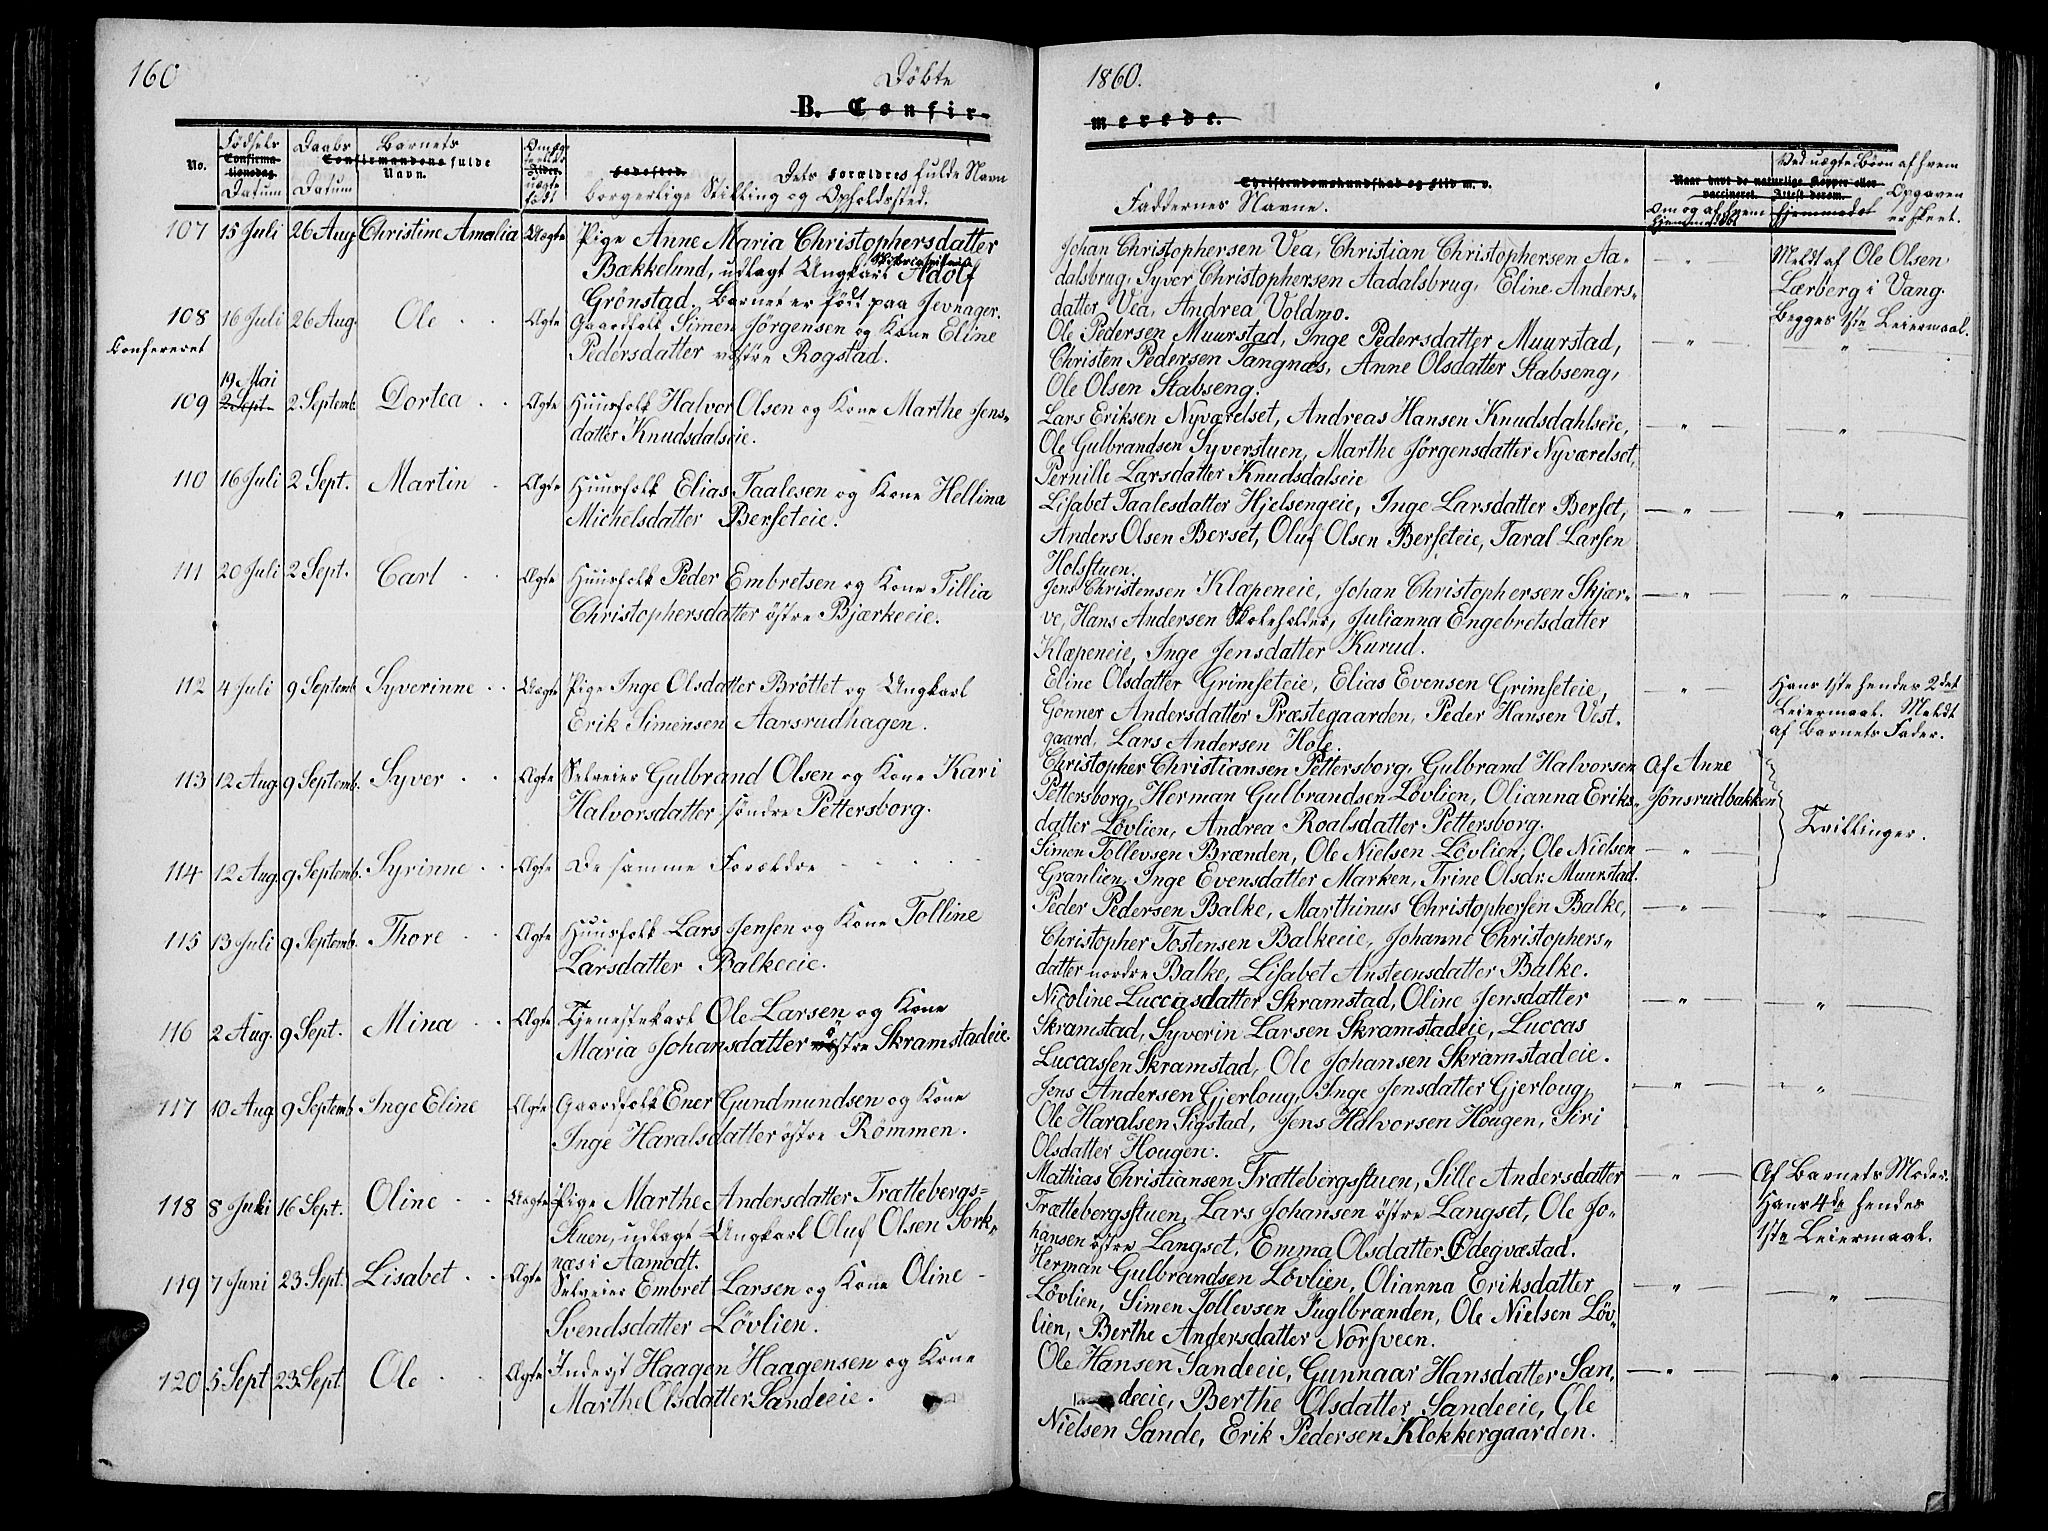 160
Døbte
B. Confir-
No.
Fødsels
Confirma-
tionsdag.
Datum
Daabs
Datum
Barnets
Confirmandens fulde
Navn.
uægte
født
Fødested.
Dets Forældres fulde Navn
borgerlige Stilling og Opholdssted.
107 15 Juli 26 Aug. Christine Amalia Uægte Pige Anne Maria Christophersdatter
Bakkelund, udlagt Ungkarl Adolf
Grönstad. Barnet er født paa Jevnager.
108 16 Juli 26 Aug. Ole Ægte Gaardfolk Simen Jørgensen og Kone Eline
Confereret
Pedersdatter vestre Rogstad.
19 Mai
109 2 Sept. 2 Septemb. Dortea Ægte Huusfolk Halvor Olsen og Kone Marthe Jens-
datter Knudsdalseie.
110 16 Juli 2 Sept. Martin Ægte Huusfolk Elias Taalesen og Kone Hellina
Michelsdatter Berseteie.
111 20 Juli 2 Sept. Carl Ægte Huusfolk Peder Embretsen og Kone Tillia
Christophersdatter østre Bjærkeeie.
112 4 Juli 9 Septemb. Syverinne Uægte Pige Inge Olsdatter Brøttet og Ungkarl
Erik Simensen Aarsrudhagen.
113 12 Aug. 9 Septemb. Syver Ægte Selveier Gulbrand Olsen og Kone Kari
Halvorsdatter søndre Pettersborg.
114 12 Aug. 9 Septemb. Syrinne Ægte De samme Forældre
115 13 Juli 9 Septemb. Thore Ægte Huusfolk Lars Jensen og Kone Tolline
Larsdatter Balkeeie.
116 2 Aug. 9 Sept. Mina Ægte Tjenestekarl Ole Larsen og Kone
Maria Johansdatter østre Skramstadeie
117 10 Aug 9 Septemb Inge Eline Ægte Gaardfolk Ener Gundmundsen og Kone
Inge Haralsdatter østre Rømmen.
118 8 Juli 16 Sept. Oline Uægte Pige Marthe Andersdatter Trættebergs-
Stuen, udlagt Ungkarl Oluf Olsen Sork-
næs i Aamodt.
119 7 Juni 23 Sept. Lisabet Ægte Selveier Embret Larsen og Kone Oline
Svendsdatter Løvlien.
120 5 Sept 23 Sept. Ole Ægte Inderst Haagen Haagensen og Kone
Marthe Olsdatter Sandeeie.
1860.
merede.
Christendomskundskab og Flid m. v.
Faddernes Navne.
Naar havt de naturlige Kopper eller
vaccineret. Attest derom.
Om og af hvem
hjemmedøbt
Ved uægte Børn af hvem
Opgaven
er skeet.
Johan Christophersen Vea, Christian Christophersen Aa-
dalsbrug, Syver Christophersen Aadalsbrug, Eline Anders-
datter Vea, Andrea Voldmo.
Meldt af Ole Olsen
Lærberg i Vang.
Begges 1ste Leiermaal.
Ole Pedersen Muurstad, Inge Pedersdatter Muurstad,
Christen Pedersen Tangnæs, Anne Olsdatter Stabseng,
Ole Olsen Stabseng.
Lars Eriksen Nyværelset, Andreas Hansen Knudsdahlseie,
Ole Gulbrandsen Syverstuen, Marthe Jørgensdatter Nyværelset,
Pernille Larsdatter Knudsdalseie
Lisabet Taalesdatter Hjelsengeie, Inge Larsdatter Berset,
Anders Olsen Berset, Oluf Olsen Berseteie, Taral Larsen
Holsstuen.
Jens Christensen Klæpeneie, Johan Christophersen Skjær-
ve, Hans Andersen Skoleholder, Julianna Engebretsdatter
Klæpeneie, Inge Jensdatter Kurud.
Eline Olsdatter Grimseteie, Elias Evensen Grimseteie,
Gønner Andersdatter Præstegaarden, Peder Hansen Vest-
gaard, Lars Andersen Hole.
Hans 1ste hendes 2det
Leiermaal. Meldt
af Barnets Fader.
Christopher Christiansen Pettersborg, Gulbrand Halvorsen
Pettersborg, Herman Gulbrandsen Løvlien, Olianna Eriks-
datter Løvlien, Andrea Roalsdatter Pettersborg.
Af Anne
Jønsrudbakken
Tvillinger.
Simen Tollevsen Brænden, Ole Nielsen Løvlien, Ole Nielsen
Granlien, Inge Evensdatter Marken, Trine Olsdr. Muurstad.
Peder Pedersen Balke, Marthinus Christophersen Balke,
Christopher Tostensen Balkeeie, Johanne Christophers-
datter nordre Balke, Lisabet Austeensdatter Balke.
Nicoline Luccasdatter Skramstad, Oline Jensdatter
Skramstad, Syverin Larsen Skramstadeie, Luccas
Luccassen Skramstad, Ole Johansen Skramstadeie.
Jens Andersen Gjerloug, Inge Jensdatter Gjerloug,
Ole Haralsen Sigstad, Jens Halvorsen Hougen, Siri
Olsdatter Hougen.
Mathias Christiansen Trættebergsstuen, Sille Andersdatter
Trættebergsstuen, Lars Johansen østre Langset, Ole Jo-
hansen østre Langset, Emma Olsdatter Ødegvæstad.
Af Barnets Moder.
Hans 4de hendes
1ste Leiermaal.
Herman Gulbrandsen Løvlien, Olianna Eriksdatter
Løvlien, Simen Tollevsen Fuglbrænden, Ole Nielsen Løv-
lien, Berthe Andersdatter Norsveen.
Ole Hansen Sandeeie, Gunnaar Hansdatter San-
deeie, Berthe Olsdatter Sandeeie, Ole
Nielsen Sande, Erik Pedersen Klokkergaarden.